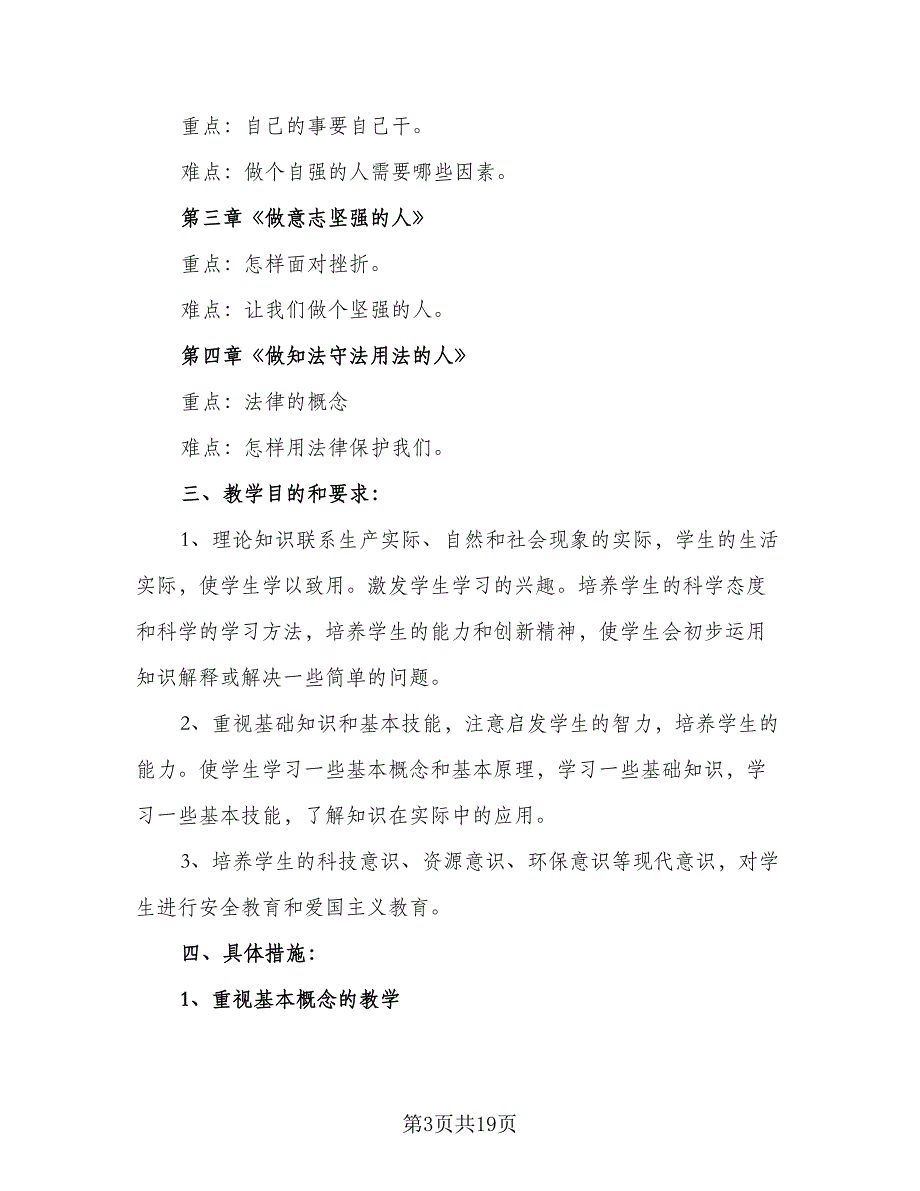 重点：自己的事要自己干。
难点：做个自强的人需要哪些因素。
第三章《做意志坚强的人》
重点：怎样面对挫折。
难点：让我们做个坚强的人。
第四章《做知法守法用法的人》
重点：法律的概念
难点：怎样用法律保护我们。
三、教学目的和要求：
1、理论知识联系生产实际、自然和社会现象的实际，学生的生活
实际，使学生学以致用。激发学生学习的兴趣。培养学生的科学态度
和科学的学习方法，培养学生的能力和创新精神，使学生会初步运用
知识解释或解决一些简单的问题。
2、重视基础知识和基本技能，注意启发学生的智力，培养学生的
能力。使学生学习一些基本概念和基本原理，学习一些基础知识，学
习一些基本技能，了解知识在实际中的应用。
3、培养学生的科技意识、资源意识、环保意识等现代意识，对学
生进行安全教育和爱国主义教育。
四、具体措施：
1、重视基本概念的教学
第3页共19页